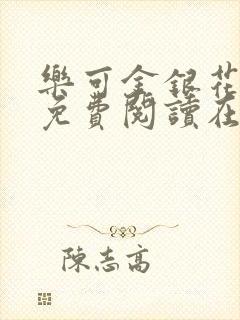 樂可金銀花
免費閱讀在
陳志高